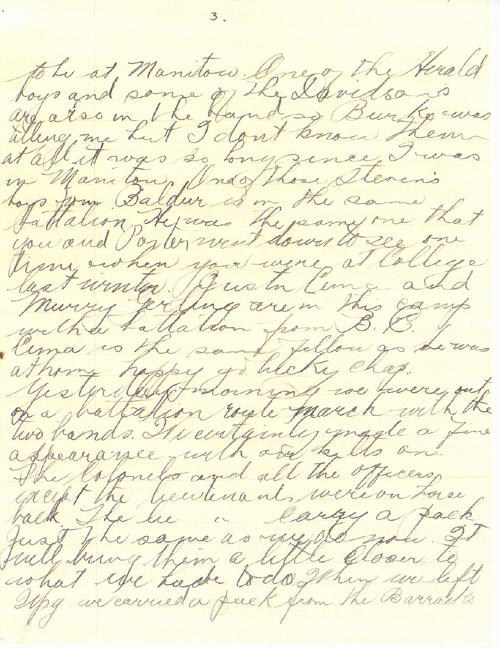 3.
to be at Manitou. One of the Herald
boys and some of the Davidsons
are also in the band so Burke was
telling me but I dont know them
at all it was so long since I was
in Manitou. One of those Stevens
boys from Baldur is in the same
battalion. He was the same one that
you and Foster went down to see one
time when you were at College
last winter. Justin Cima and
Murry are in this camp
with a battalion from B.C.
Cima is the same fellow as he was
at home happy go lucky chap.
Yesterday morning we were out
on a battalion route march with the
two bands. It certainly made a fine
appearance with our kilts on.
The Colonels and all the officers
except the lieutenants were on Horse
back The lie " carry a pack
just the same as we do now. It
will bring them a little closer to
what we have to do. When we left
Wpg we carried a pack from the Barracks